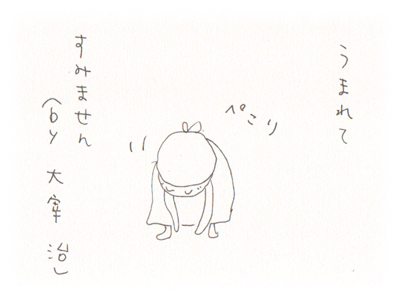 うまれて
ぺこり
すみません
(by 太宰治)